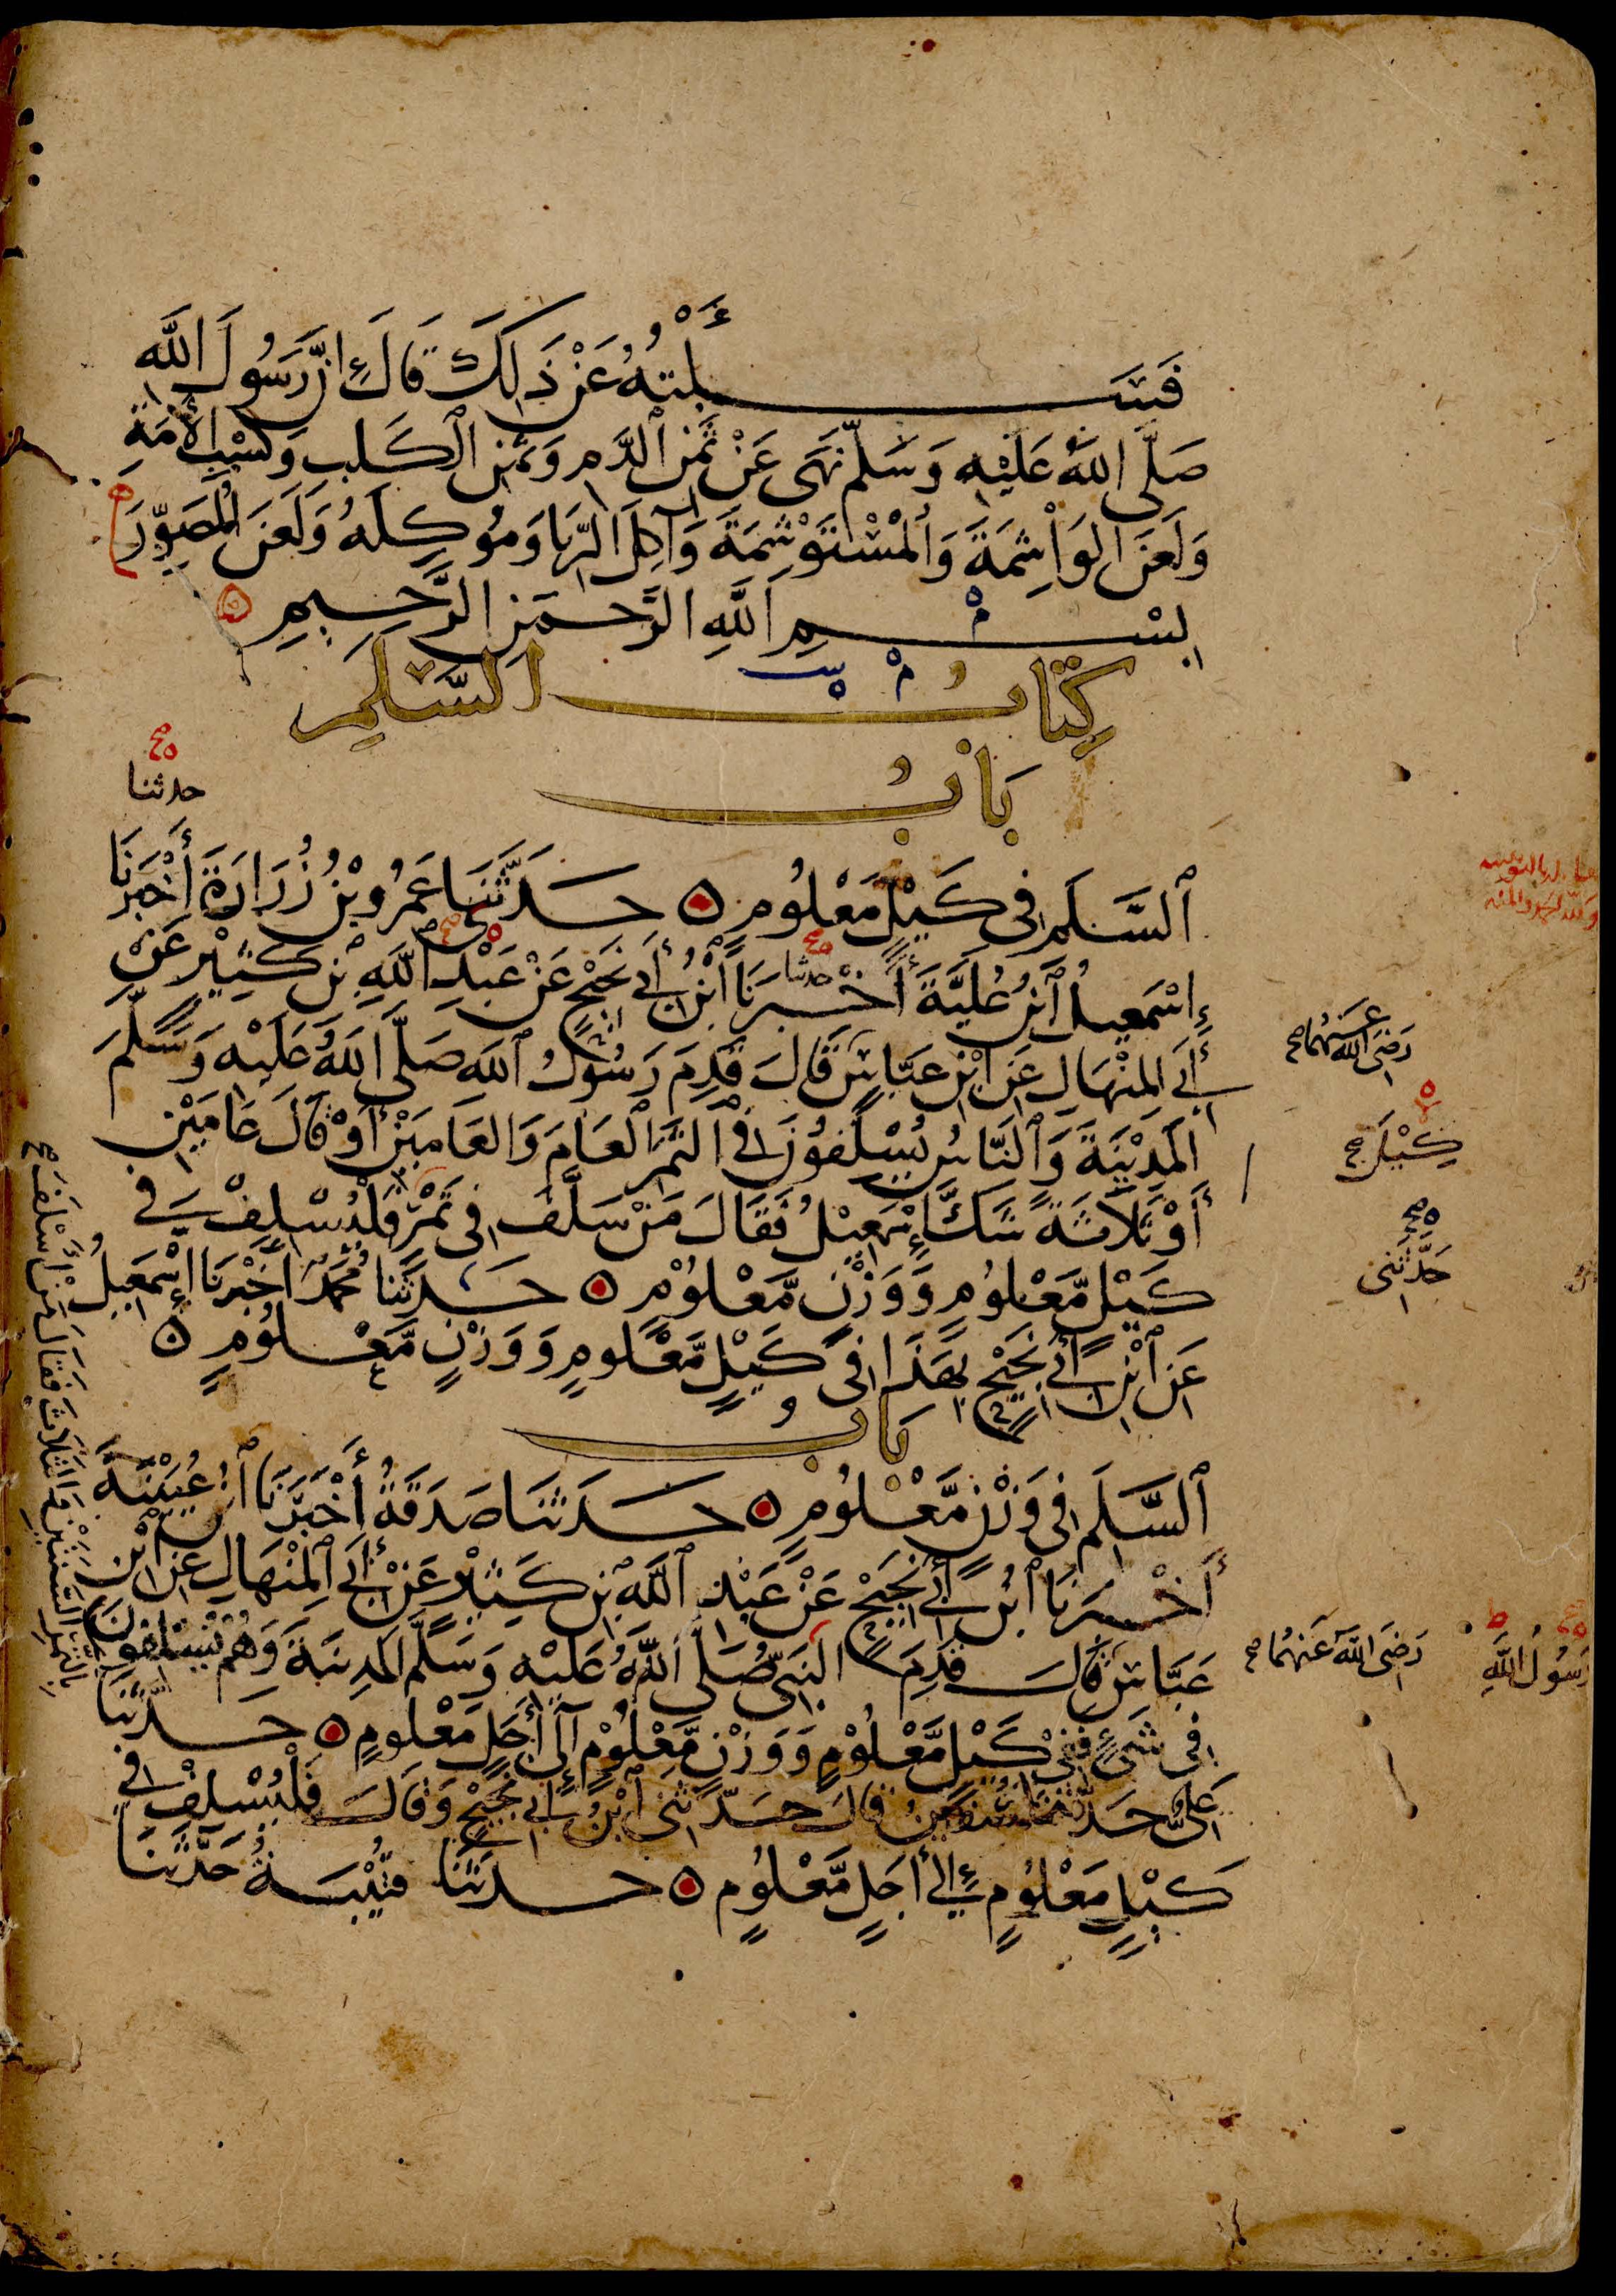 فَسَأَلْتُهُ عَنْ ذَلِكَ قَالَ إِنَّ رَسُولَ اللَّهِ
صَلَّى اللهُ عَلَيْهِ وَسَلَّمَ نَهَى عَنْ ثَمَنِ ٱلدَّمِ وَثَمَنِ الْكَلبِ وَكَسْبِ الأَمَةِ
وَلَعَنَ الوَاشِمَةَ وَالْمُسْتَوْشِمَةَ وَآكِلَ الرِّبَا وَمُوكِلَهُ وَلَعَنَ الْمُصَوِّرَ
بِسْمِ اللَّهِ الرَّحْمَنِ الرَّحِيمِ
كِتَابُ السَّلَمِ
بَابُ
حدثنا
ٱلسَّلَمِ فِي كَيْلٍ مَعْلُومٍ حَدَّثَنَا عَمْرُو بْنُ زُرَارَةَ أَخْبَرَنَا
إِسْمَعِيلُ ٱبْنُ عُلَيَّةَ أَخْبَرَنَا ٱبْنُ أَبِي نَجِيْحٍ عَنْ عَبْدِ ٱللَّهِ بْنِ كَثِيْرٍ عَنْ
حدثنا
أَبِي المِنْهَالِ عَنِ ابْنِ عَبَّاسٍ قَالَ قَدِمَ رَسُولُ ٱللَّهِ صَلَّى اللهُ عَلَيْهِ وَسَلَّمَ
رَضِيَ اللَّهُ عَنْهُمَا
المَدِيْنَةَ وَٱلنَّاسُ يُسْلِفُونَ فِي الثَّمَرِ الْعَامَ وَالعَامَيْنِ أَوْ قَالَ عَامَيْنِ
أَوْ ثَلَاثَةً شَكَّ إِسْمَعِيْلُ فَقَالَ مَنْ سَلَّفَ فِي تَمْرٍ فَلْيُسْلِفْ فِي
كَيْلٍ
كَيْلٍ مَّعْلُومٍ وَوَزْنٍ مَّعْلُوْمٍ حَدَّثَنَا مُحَمَّدٌ أَخْبَرَنَا إِسْمَعِيلُ
حَدَّثَنِي
عَنِ ٱبْنِ أَبِي نَجِيْحٍ بِهَذَا فِي كَيْلٍ مَّعْلُومٍ وَوَزْنٍ مَّعْلُومٍ
بَابُ
ٱلسَّلَمِ فِي وَزْنٍ مَّعْلُومٍ حَدَّثَنَا صَدَقَةُ أَخْبَرَنَا ٱبْنُ عُيَيْنَةَ
أَخْبَرَنَا ٱبْنُ أَبِي نَجِيْحٍ عَنْ عَبْدِ ٱللَّهِ بْنِ كَثِيْرٍ عَنْ أَبِي ٱلمِنْهَالِ عَنِ ابْنِ
عَبَّاسٍ قَالَ قَدِمَ النَّبِيُّ صَلَّى اللَّهُ عَلَيْهِ وَسَلَّمَ المَدِيْنَةَ وَهُمْ يُسْلِفُونَ
رَضِيَ اللَّهُ عَنْهُمَا
رَسُولُ اللَّهِ
بِالتَّمْرِ السَّنَتَيْنِ وَالثَّلَاثَ فَقَالَ مَنْ أَسْلَفَ
فِي شَيْءٍ فَفِيْ كَيْلٍ مَّعْلُوْمٍ وَوَزْنٍ مَّعْلُوْمٍ إِلَى أَجَلٍ مَعْلُومٍ حَدَّثَنَا
عَلِيٌّ حَدَّثَنَا سُفْيَنُ قَالَ حَدَّثَنِي ٱبْنُ أَبِي نَجِيْحٍ وَقَالَ فَلْيُسْلِفْ فِي
كَيْلٍ مَعْلُومٍ إِلَى أَجَلٍ مَّعْلُومٍ حَدَّثَنَا قُتَيْبَةُ حَدَّثَنَا